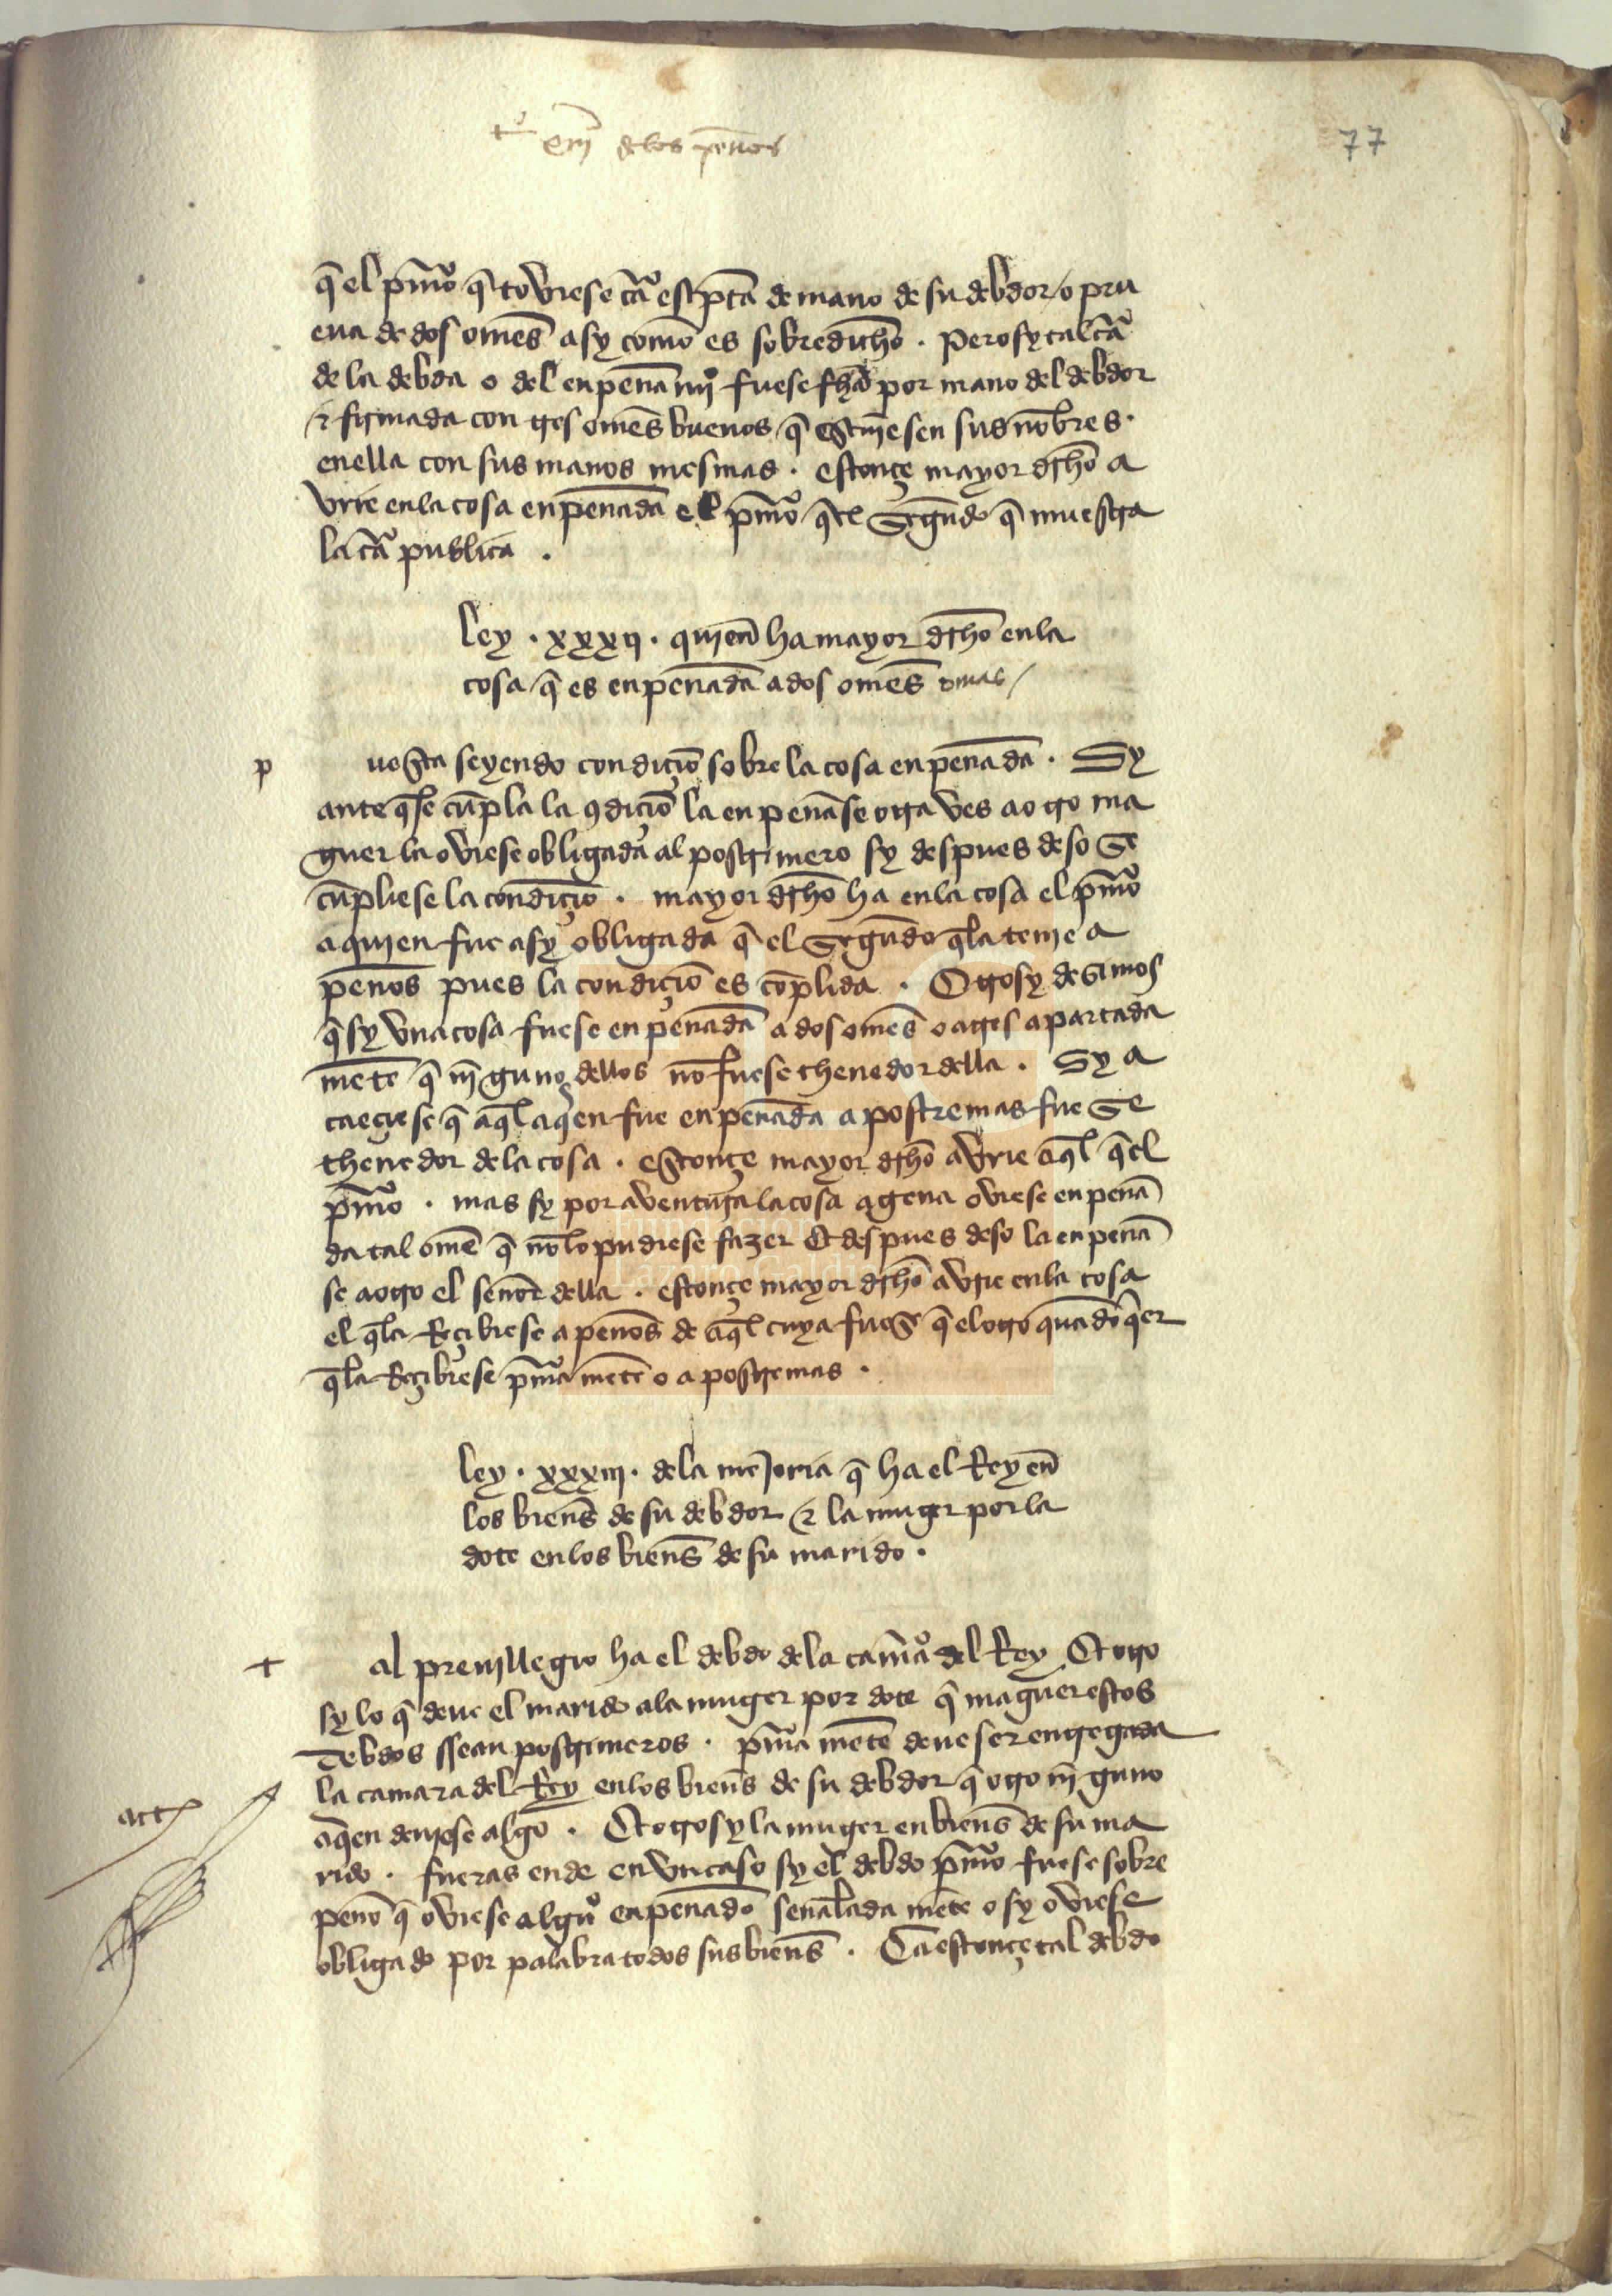 tº xiij de los penos
77
q̃ el pͥmo q̃ toviese cᷓa escͥpta de mano de su debdor / o pru
eua de dos omẽs asy como es sobredicho . Pero sy tal cᷓa
de la debda o del enpenamjº fuese fhᷓa por mano del debdor
& firmada con tres omẽs buenos q̃ escͥujesen sus nõbres .
en ella con sus manos mesmas . estonçe mayor dr̃cho a
vrie en la cosa enpenada el pͥmo q̃l segũdo q̃ muestra
la cᷓa publica .
Ley . xxxij . quien ha mayor dr̃cho en la
cosa q̃ es enpenada a dos omẽs o mas /
p
uesta seyendo condiçiõ sobre la cosa enpenada . Sy
ante q̃ se cũpla la ꝯdiçiõ la enpenase otra ves a otro ma
guer la oviese obligada al postrimero sy despues deso se
cũpliese la condiçiõ . mayor dr̃cho ha en la cosa el pͥmo
a quien fue asy obligada q̃ el segũdo q̃ la tiene a
penos pues la condiçiõ es cõplida . Otrosy desimos
q̃ sy vna cosa fuese enpenada a dos omẽs o a tres apartada
mẽte q̃ njnguno dellos nõ fuese thenedor della . Sy a
caeçiese q̃ aq̃l a q̃en fue enpenada a postremas fuese
thenedor de la cosa . estonçe mayor dr̃cho avrie aq̃l q̃l
pͥmo . mas sy por aventura la cosa agena oviese enpena
da tal ome q̃ nõ lo pudiese fazer Et despues deso la enpena
se a otro el senor della . estonçe mayor dr̃cho avrie en la cosa
el q̃ la Reçibiese a penos de aq̃l cuya fuese q̃ el otro quãdo q̃er
q̃ la Reçibiese pͥma mẽte o a postremas .
Ley . xxxiij . de la mejoria q̃ ha el Rey en
los bienẽs de su debdor & la muger por la
dote en los bienẽs de su marido .
t
al preujllegio ha el debdo de la camᷓa del Rey Et otro
sy lo q̃ deue el marido a la muger por dote q̃ maguer estos
debdos ssean postrimeros . pͥma mẽte deue ser entregada
la camara del Rey en los bienẽs de su debdor q̃ otro njnguno
a q̃en deujese algo . Et otrosy la muger en bienẽs de su ma
rido . fueras ende en vn caso sy el debdo pͥmo fuese sobre
peno q̃ oviese algũo enpenado senalada mẽte o sy oviese
obligado por palabra todos sus bienẽs . Ca estonçe tal debdo